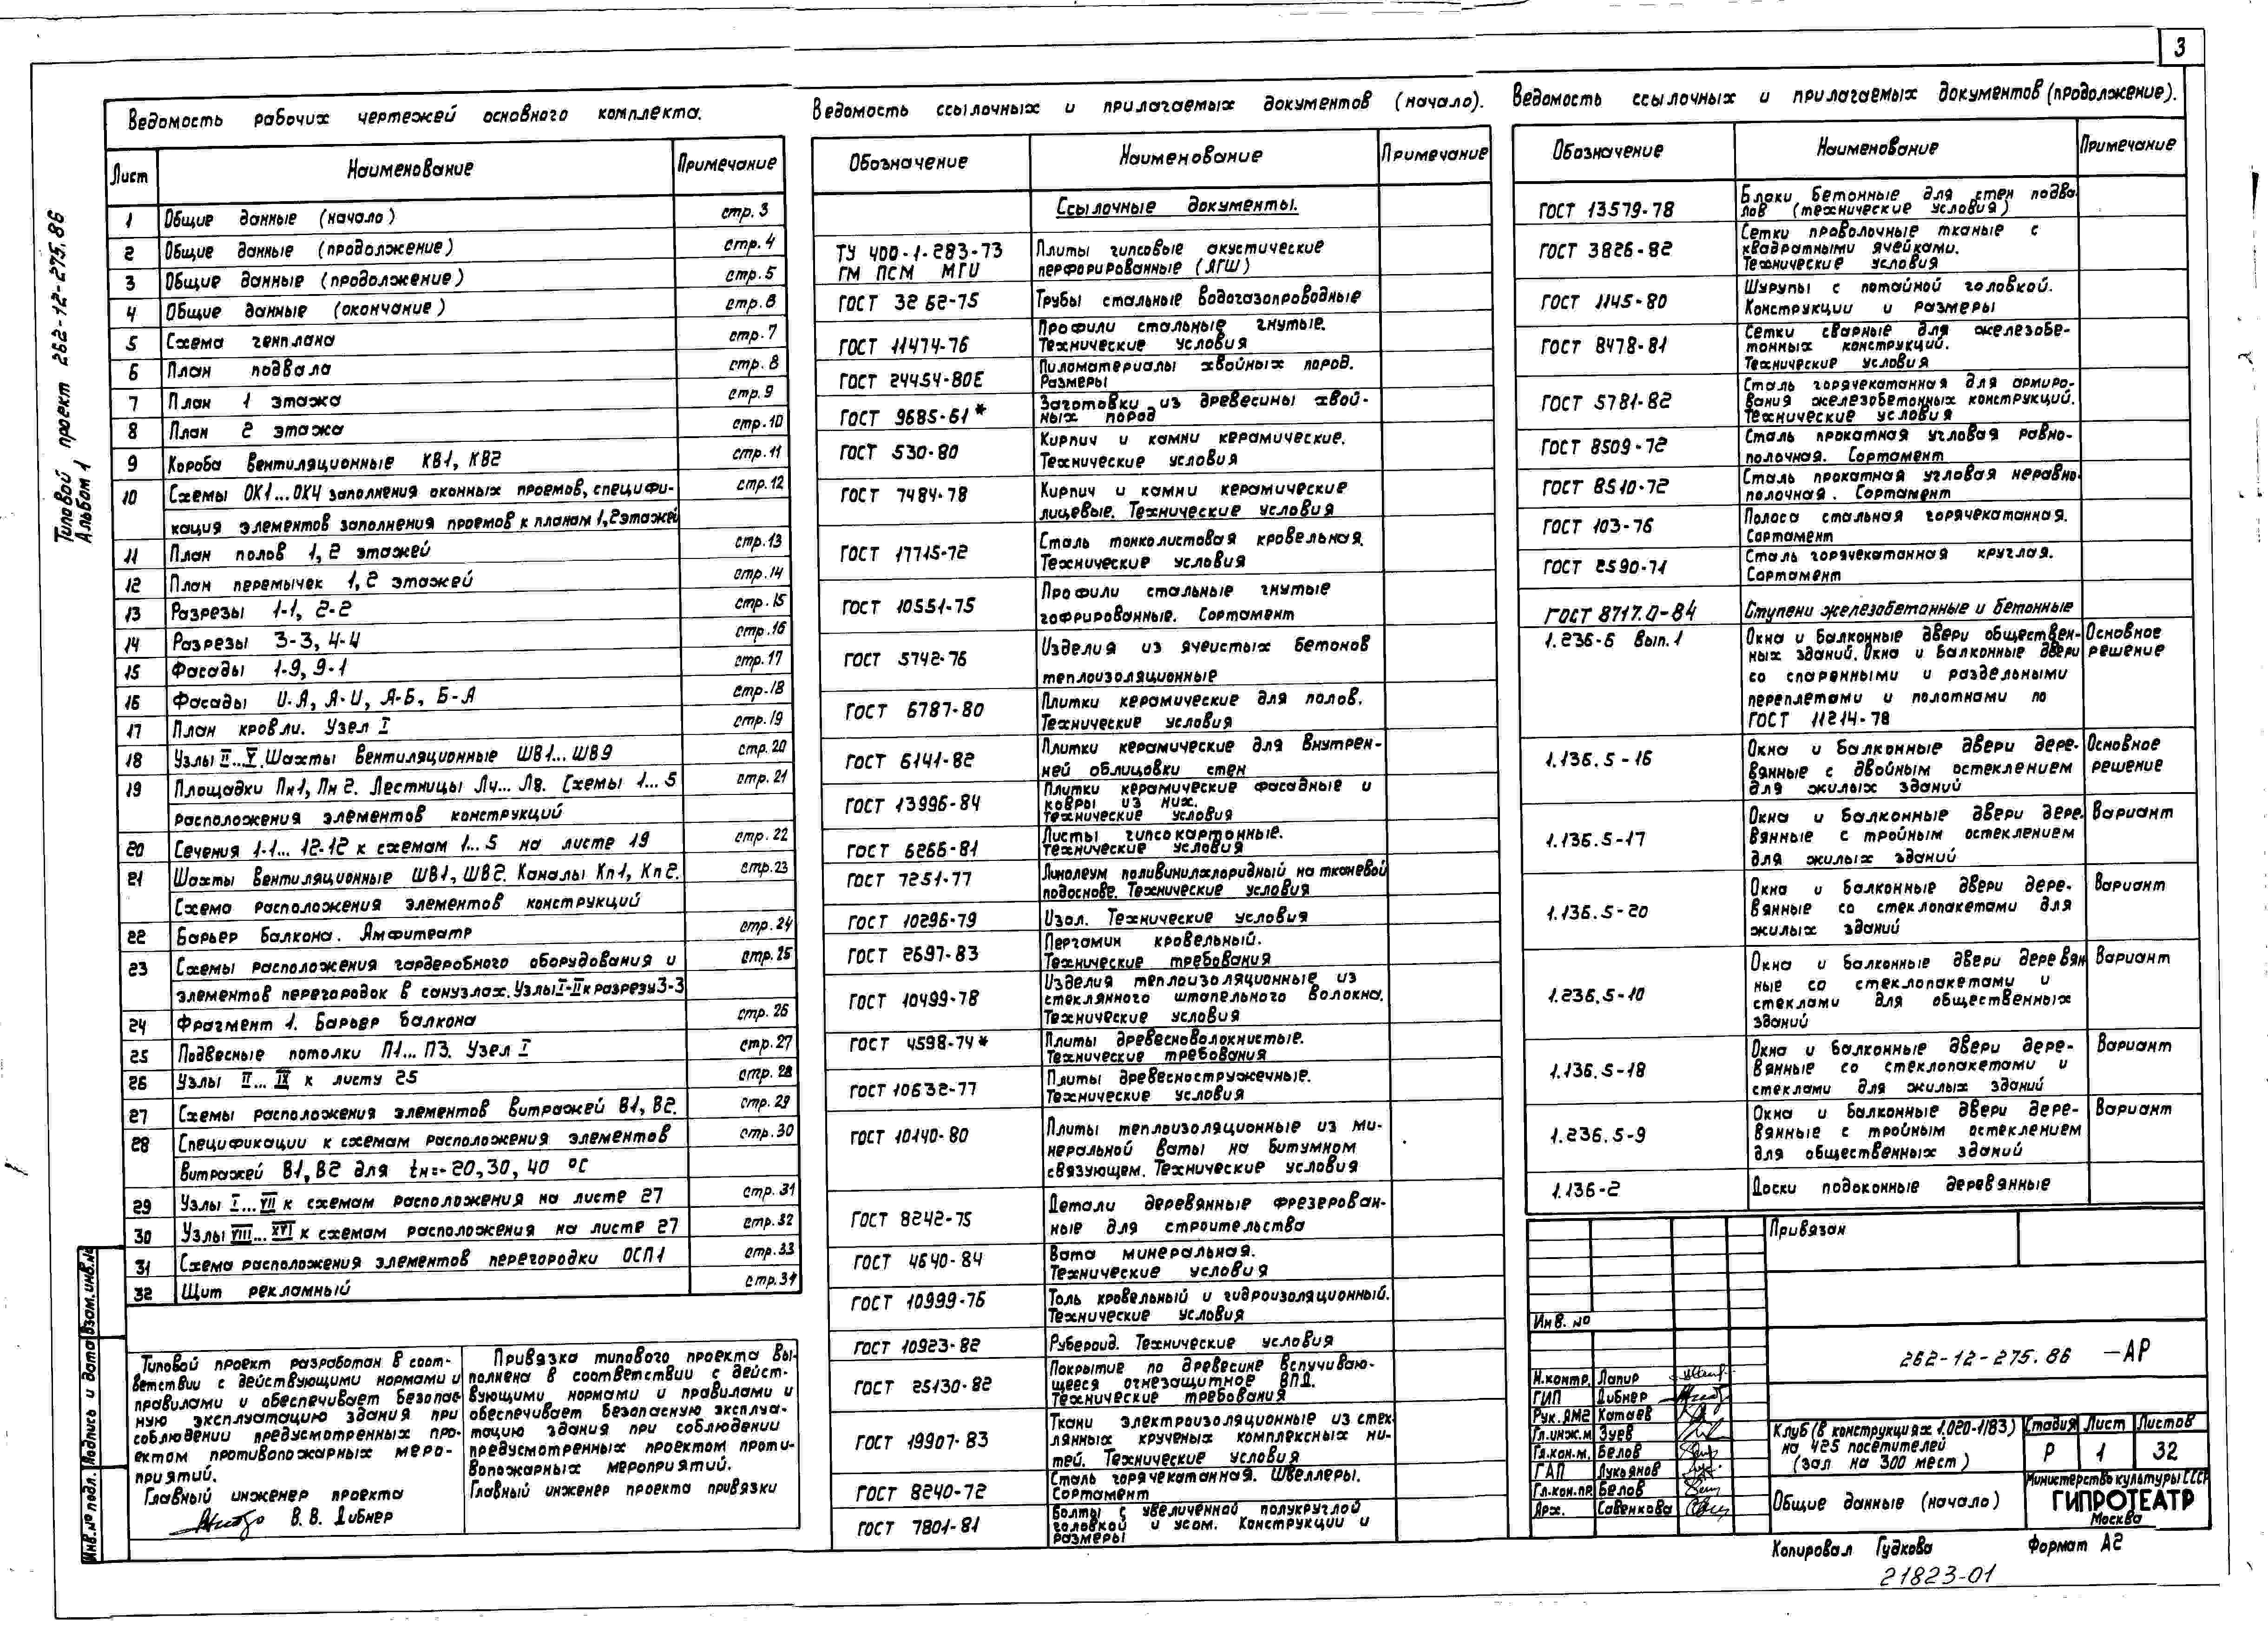 3
Типовой проект 262-12-275.86
Альбом 1
Ведомость рабочих чертежей основного комплекта.
Лист Наименование Примечание
1 Общие данные (начало) стр.3
2 Общие данные (продолжение) стр.4
3 Общие данные (продолжение) стр.5
4 Общие данные (окончание) стр.6
5 Схема генплана стр.7
6 План подвала стр.8
7 План 1 этажа стр.9
8 План 2 этажа стр.10
9 Короба вентиляционные КВ1, КВ2 стр.11
10 Схемы ОК1...ОК4 заполнения оконных проемов, специфи- стр.12
кация элементов заполнения проемов к планам 1,2 этажей
11 План полов 1,2 этажей стр.13
12 План перемычек 1,2 этажей стр.14
13 Разрезы 1-1, 2-2 стр.15
14 Разрезы 3-3, 4-4 стр.16
15 Фасады 1-9, 9-1 стр.17
16 Фасады И-А, А-И, А-Б, Б-А стр.18
17 План кровли. Узел I стр.19
18 Узлы II...V. Шахты вентиляционные ШВ1...ШВ9 стр.20
19 Площадки Пн1, Пн2. Лестницы Л4...Л8. Схемы 1...5 стр.21
расположения элементов конструкций
20 Сечения 1-1... 12-12 к схемам 1...5 на листе 19 стр.22
21 Шахты вентиляционные ШВ1, ШВ2. Каналы Кп1, Кп2. стр.23
Схема расположения элементов конструкций
22 Барьер балкона. Амфитеатр стр.24
23 Схемы расположения гардеробного оборудования и стр.25
элементов перегородок в санузлах. Узлы I-II к разрезу 3-3
24 Фрагмент 1. Барьер балкона стр.26
25 Подвесные потолки П1...П3. Узел I стр.27
26 Узлы II...IX к листу 25 стр.28
27 Схемы расположения элементов витражей В1, В2. стр.29
28 Спецификации к схемам расположения элементов стр.30
витражей В1, В2 для tн=-20,30,40 °С
29 Узлы I...VII к схемам расположения на листе 27 стр.31
30 Узлы VIII...XVI к схемам расположения на листе 27 стр.32
31 Схема расположения элементов перегородки ОСП1 стр.33
32 Щит рекламный стр.34
Типовой проект разработан в соот-
ветствии с действующими нормами и
правилами и обеспечивает безопас-
ную эксплуатацию здания при
соблюдении предусмотренных про-
ектом противопожарных меро-
приятий.
Главный инженер проекта
В.В. Дибнер
Привязка типового проекта вы-
полнена в соответствии с дейст-
вующими нормами и правилами и
обеспечивает безопасную эксплуа-
тацию здания при соблюдении
предусмотренных проектом проти-
вопожарных мероприятий.
Главный инженер проекта привязки
Взам.инв.№
Подпись и дата
Инв.№ подл.
Ведомость ссылочных и прилагаемых документов (начало).
Обозначение Наименование Примечание
Ссылочные документы.
ТУ 400-1-283-73 Плиты гипсовые акустические
ГМ ПСМ МГИ перфорированные (АГШ)
ГОСТ 3262-75 Трубы стальные водогазопроводные
ГОСТ 11474-76 Профили стальные гнутые.
Технические условия
ГОСТ 24454-80Е Пиломатериалы хвойных пород.
Размеры
ГОСТ 9685-61* Заготовки из древесины хвой-
ных пород
ГОСТ 530-80 Кирпич и камни керамические.
Технические условия
ГОСТ 7484-78 Кирпич и камни керамические
лицевые. Технические условия
ГОСТ 17715-72 Сталь тонколистовая кровельная.
Технические условия
ГОСТ 10551-75 Профили стальные гнутые
гофрированные. Сортамент
ГОСТ 5742-76 Изделия из ячеистых бетонов
теплоизоляционные
ГОСТ 6787-80 Плитки керамические для полов.
Технические условия
ГОСТ 6141-82 Плитки керамические для внутрен-
ней облицовки стен
ГОСТ 13996-84 Плитки керамические фасадные и
ковры из них.
Технические условия
ГОСТ 6266-81 Листы гипсокартонные.
Технические условия
ГОСТ 7251-77 Линолеум поливинилхлоридный на тканевой
подоснове. Технические условия
ГОСТ 10296-79 Изол. Технические условия
ГОСТ 2697-83 Пергамин кровельный.
Технические требования
ГОСТ 10499-78 Изделия теплоизоляционные из
стеклянного штапельного волокна.
Технические условия
ГОСТ 4598-74* Плиты древесноволокнистые.
Технические требования
ГОСТ 10632-77 Плиты древесностружечные.
Технические условия
ГОСТ 10140-80 Плиты теплоизоляционные из ми-
неральной ваты на битумном
связующем. Технические условия
ГОСТ 8242-75 Детали деревянные фрезерован-
ные для строительства
ГОСТ 4640-84 Вата минеральная.
Технические условия
ГОСТ 10999-76 Толь кровельный и гидроизоляционный.
Технические условия
ГОСТ 10923-82 Рубероид. Технические условия
ГОСТ 25130-82 Покрытие по древесине вспучиваю-
щееся огнезащитное ВПД.
Технические требования
ГОСТ 19907-83 Ткани электроизоляционные из стек
лянных крученых комплексных ни-
тей. Технические условия
ГОСТ 8240-72 Сталь горячекатанная. Швеллеры.
Сортамент
ГОСТ 7801-81 Болты с увеличенной полукруглой
головкой и усом. Конструкции и
размеры
Ведомость ссылочных и прилагаемых документов (продолжение).
Обозначение Наименование Примечание
ГОСТ 13579-78 Блоки бетонные для стен подва-
лов (технические условия)
ГОСТ 3826-82 Сетки проволочные тканые с
квадратными ячейками.
Технические условия
ГОСТ 1145-80 Шурупы с потайной головкой.
Конструкции и размеры
ГОСТ 8478-81 Сетки сварные для железобе-
тонных конструкций.
Технические условия
ГОСТ 5781-82 Сталь горячекатанная для армиро-
вания железобетонных конструкций.
Технические условия
ГОСТ 8509-72 Сталь прокатная угловая равно-
полочная. Сортамент
ГОСТ 8510-72 Сталь прокатная угловая неравно-
полочная. Сортамент
ГОСТ 103-76 Полоса стальная горячекатанная.
Сортамент
ГОСТ 2590-71 Сталь горячекатанная круглая.
Сортамент
ГОСТ 8717.0-84 Ступени железобетонные и бетонные
1.236-6 вып.1 Окна и балконные двери обществен- Основное
ных зданий. Окна и балконные двери решение
со спаренными и раздельными
переплетами и полотнами по
ГОСТ 11214-78
1.136.5-16 Окна и балконные двери дере- Основное
вянные с двойным остеклением решение
для жилых зданий
1.136.5-17 Окна и балконные двери дере- Вариант
вянные с тройным остеклением
для жилых зданий
1.136.5-20 Окна и балконные двери дере- Вариант
вянные со стеклопакетами для
жилых зданий
1.236.5-10 Окна и балконные двери деревян Вариант
ные со стеклопакетами и
стеклами для общественных
зданий
1.136.5-18 Окна и балконные двери дере- Вариант
вянные со стеклопакетами и
стеклами для жилых зданий
1.236.5-9 Окна и балконные двери дере- Вариант
вянные с тройным остеклением
для общественных зданий
1.136-2 Доски подоконные деревянные
Привязан
Инв. №
262-12-275.86 -АР
Н.контр. Лапир
ГИП Дибнер
Рук.АМ2 Катаев
Гл.инж.м Зуев
Гл.кон.м. Белов
ГАП Лукьянов
Гл.кон.пр. Белов
Арх. Савенкова
Клуб (в конструкциях 1.020-1/83)
на 425 посетителей
(зал на 300 мест)
Стадия Лист Листов
Р 1 32
Общие данные (начало)
Министерство культуры СССР
ГИПРОТЕАТР
Москва
Копировал Гудкова Формат А2
21823-01